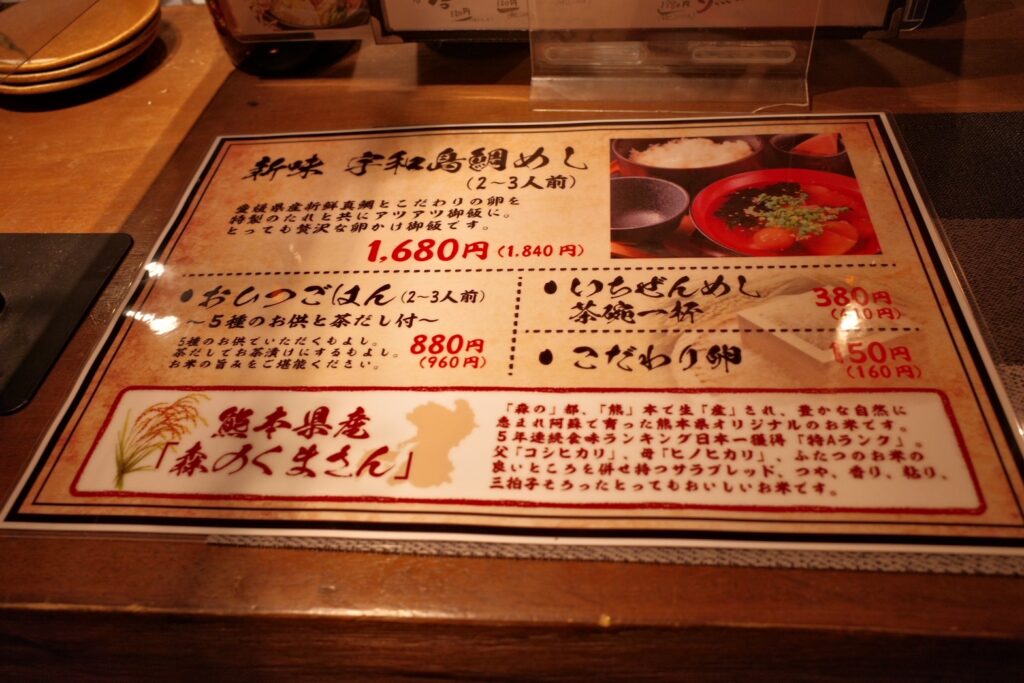 新味 宇和島鯛めし
(2〜3人前)
愛媛県産新鮮真鯛とこだわりの卵を
特製のたれと共にアツアツ御飯に。
とっても贅沢な卵かけ御飯です。
1,680円(1.840円)
・おひつごはん(2〜3人前)
〜5種のお供と茶だし付〜
5種のお供でいただくもよし。
茶だしでお茶漬けにするもよし。
お米の旨みをご堪能ください。
880円
(960円)
・いちぜんめし
茶碗一杯
380円
(410円)
・こだわり卵
150円
(160円)
熊本県産
「森のくまさん」
「森の」都、「熊」本で生「産」され、豊かな自然に
恵まれ阿蘇で育った熊本県オリジナルのお米です。
5年連続食味ランキング日本一獲得「特Aランク」。
父「コシヒカリ」、母「ヒノヒカリ」、ふたつのお米の
良いところを併せ持つサラブレッド、つや、香り、粘り、
三拍子そろったとってもおいしいお米です。